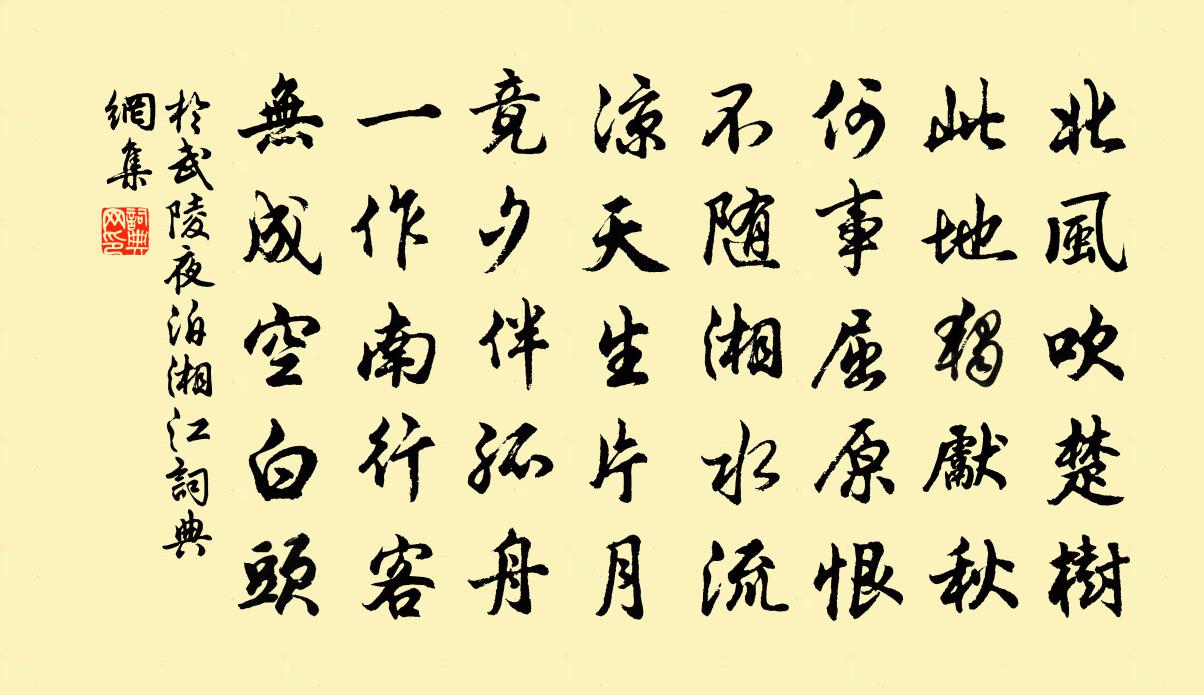 北風吹楚樹
此地獨獻秋
何事屈原恨
不随湘水流
涼天生片月
竟夕伴孤舟
一作南行客
無成空白頭
於武陵夜泊湘江詞典
網集
詞典
网印